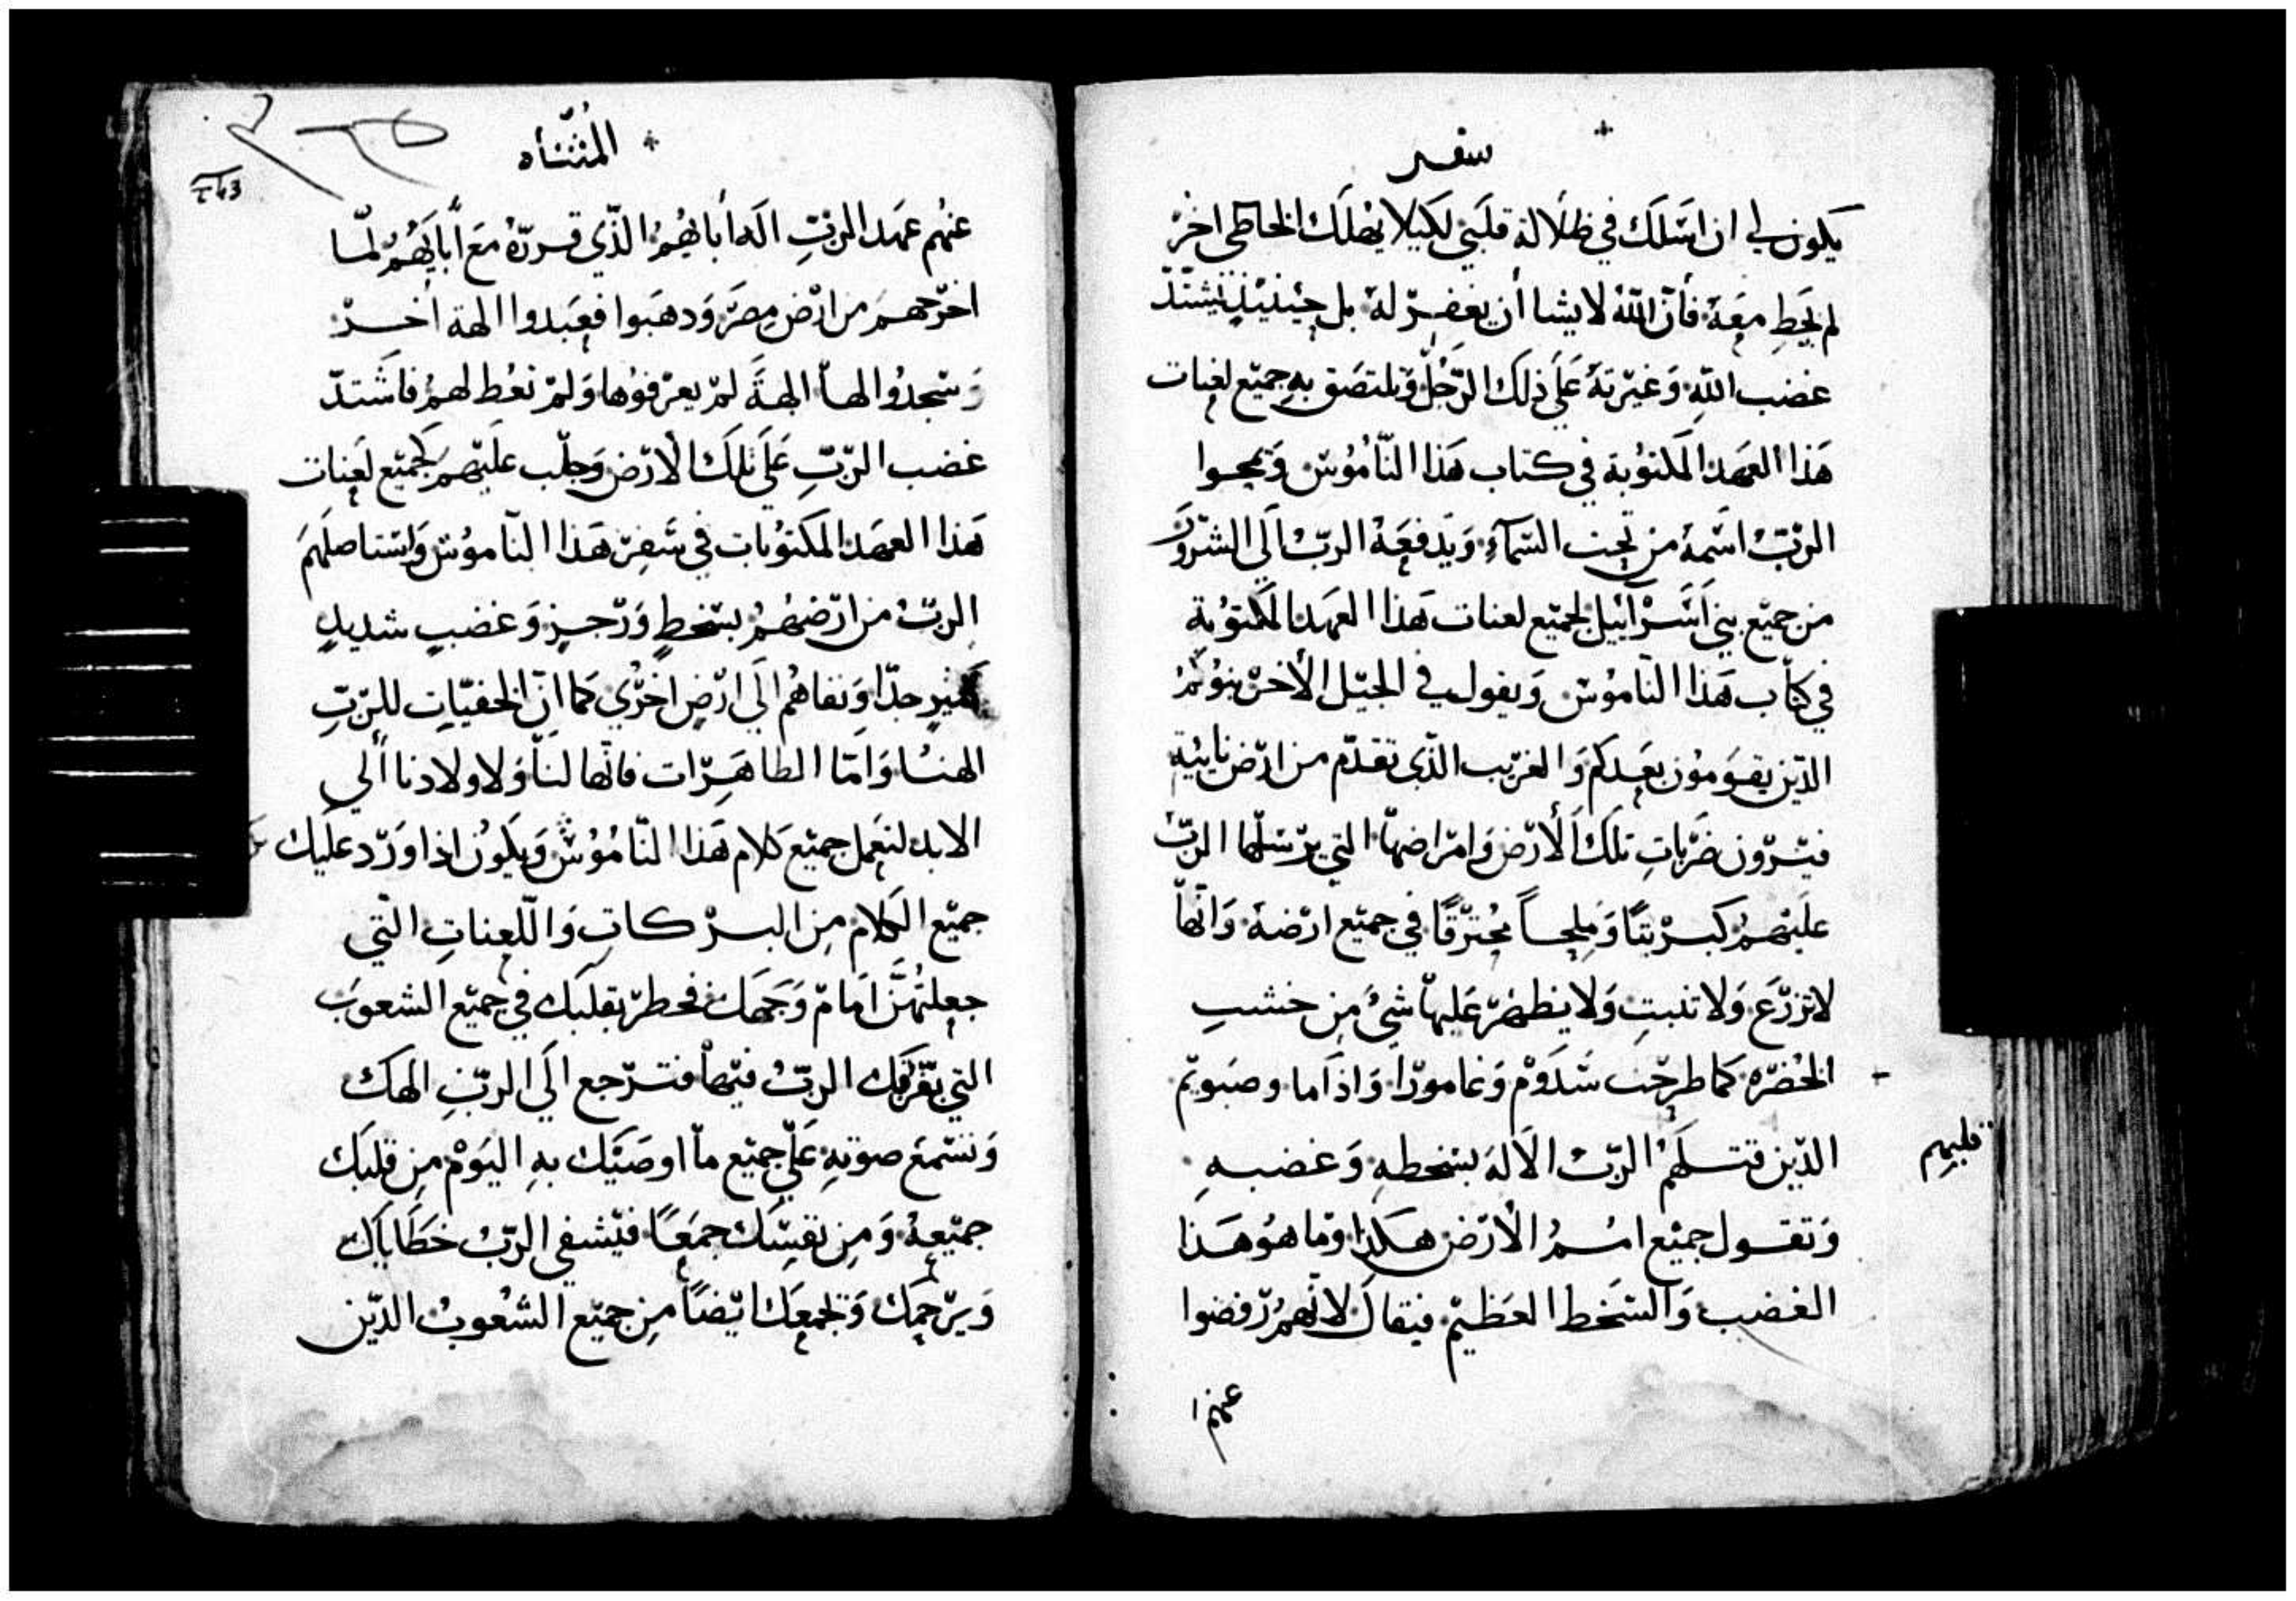 سفر
يكون لي ان اسلك في ظلالة قلبي لكيلا يهلك الخاطي اخر
لم يخط معه فأن الله لا يشا أن يغفر له بل حينيذ يشتد
غضب الله وغيرته على ذلك الرجل وتلتصق به جميع لعنات
هذا العهد المكتوبة في كتاب هذا الناموس ويمحوا
الرب اسمه من تحت السمآء ويدفعه الرب الى الشرور
من جميع بني اسرآييل لجميع لعنات هذا العهد المكتوبة
في كتاب هذا الناموس ويقول في الجيل الأخر بنوكم
الذين يقومون بعدكم والغريب الذي تقدم من ارض نايية
فيرون ضربات تلك الأرض وامراضها التي يرسلها الرب
عليهم كبريتا وملحا محترقا في جميع ارضه وانها
لا تزرع ولا تنبت ولا يظهر عليها شي من خشب
الخضره كما طرحت سدوم وغامورا واذاما وصبويم
الذين قتلهم الرب الاله بسخطه وغضبه
قلبهم
وتقول جميع امم الارض هكذا وما هو هذا
الغضب والسخط العظيم فيقال لانهم رفضوا
عنهم
المثناه
عنهم عهد الرب اله أبايهم الذي قرره مع أبايهم لما
اخرجهم من ارض مصر ودهبوا فعبدوا الهة اخر
وسجدوا لها الهة لم يعرفوها ولم تعط لهم فاشتد
غضب الرب على تلك الارض وجلب عليهم كجميع لعنات
هذا العهد المكتوبات في سفر هذا الناموس واستاصلهم
الرب من ارضهم بسخط ورجز وغضب شديد
كثير جدا ونفاهم الى ارض اخرى كما ان الخفيات للرب
الهنا واما الظاهرات فانها لنا ولاولادنا الى
الابد لنعمل جميع كلام هذا الناموس ويكون اذا ورد عليك
جميع الكلام من البركات واللعنات التي
جعلتهن امام وجهك فخطر بقلبك في جميع الشعوب
التي يفرقك الرب فيها فترجع الى الرب الهك
وتسمع صوته على جميع ما اوصيك به اليوم من قلبك
جميعه ومن نفسك جمعا فيشفي الرب خطاياك
ويرحمك ويجمعك ايضا من جميع الشعوب الذين